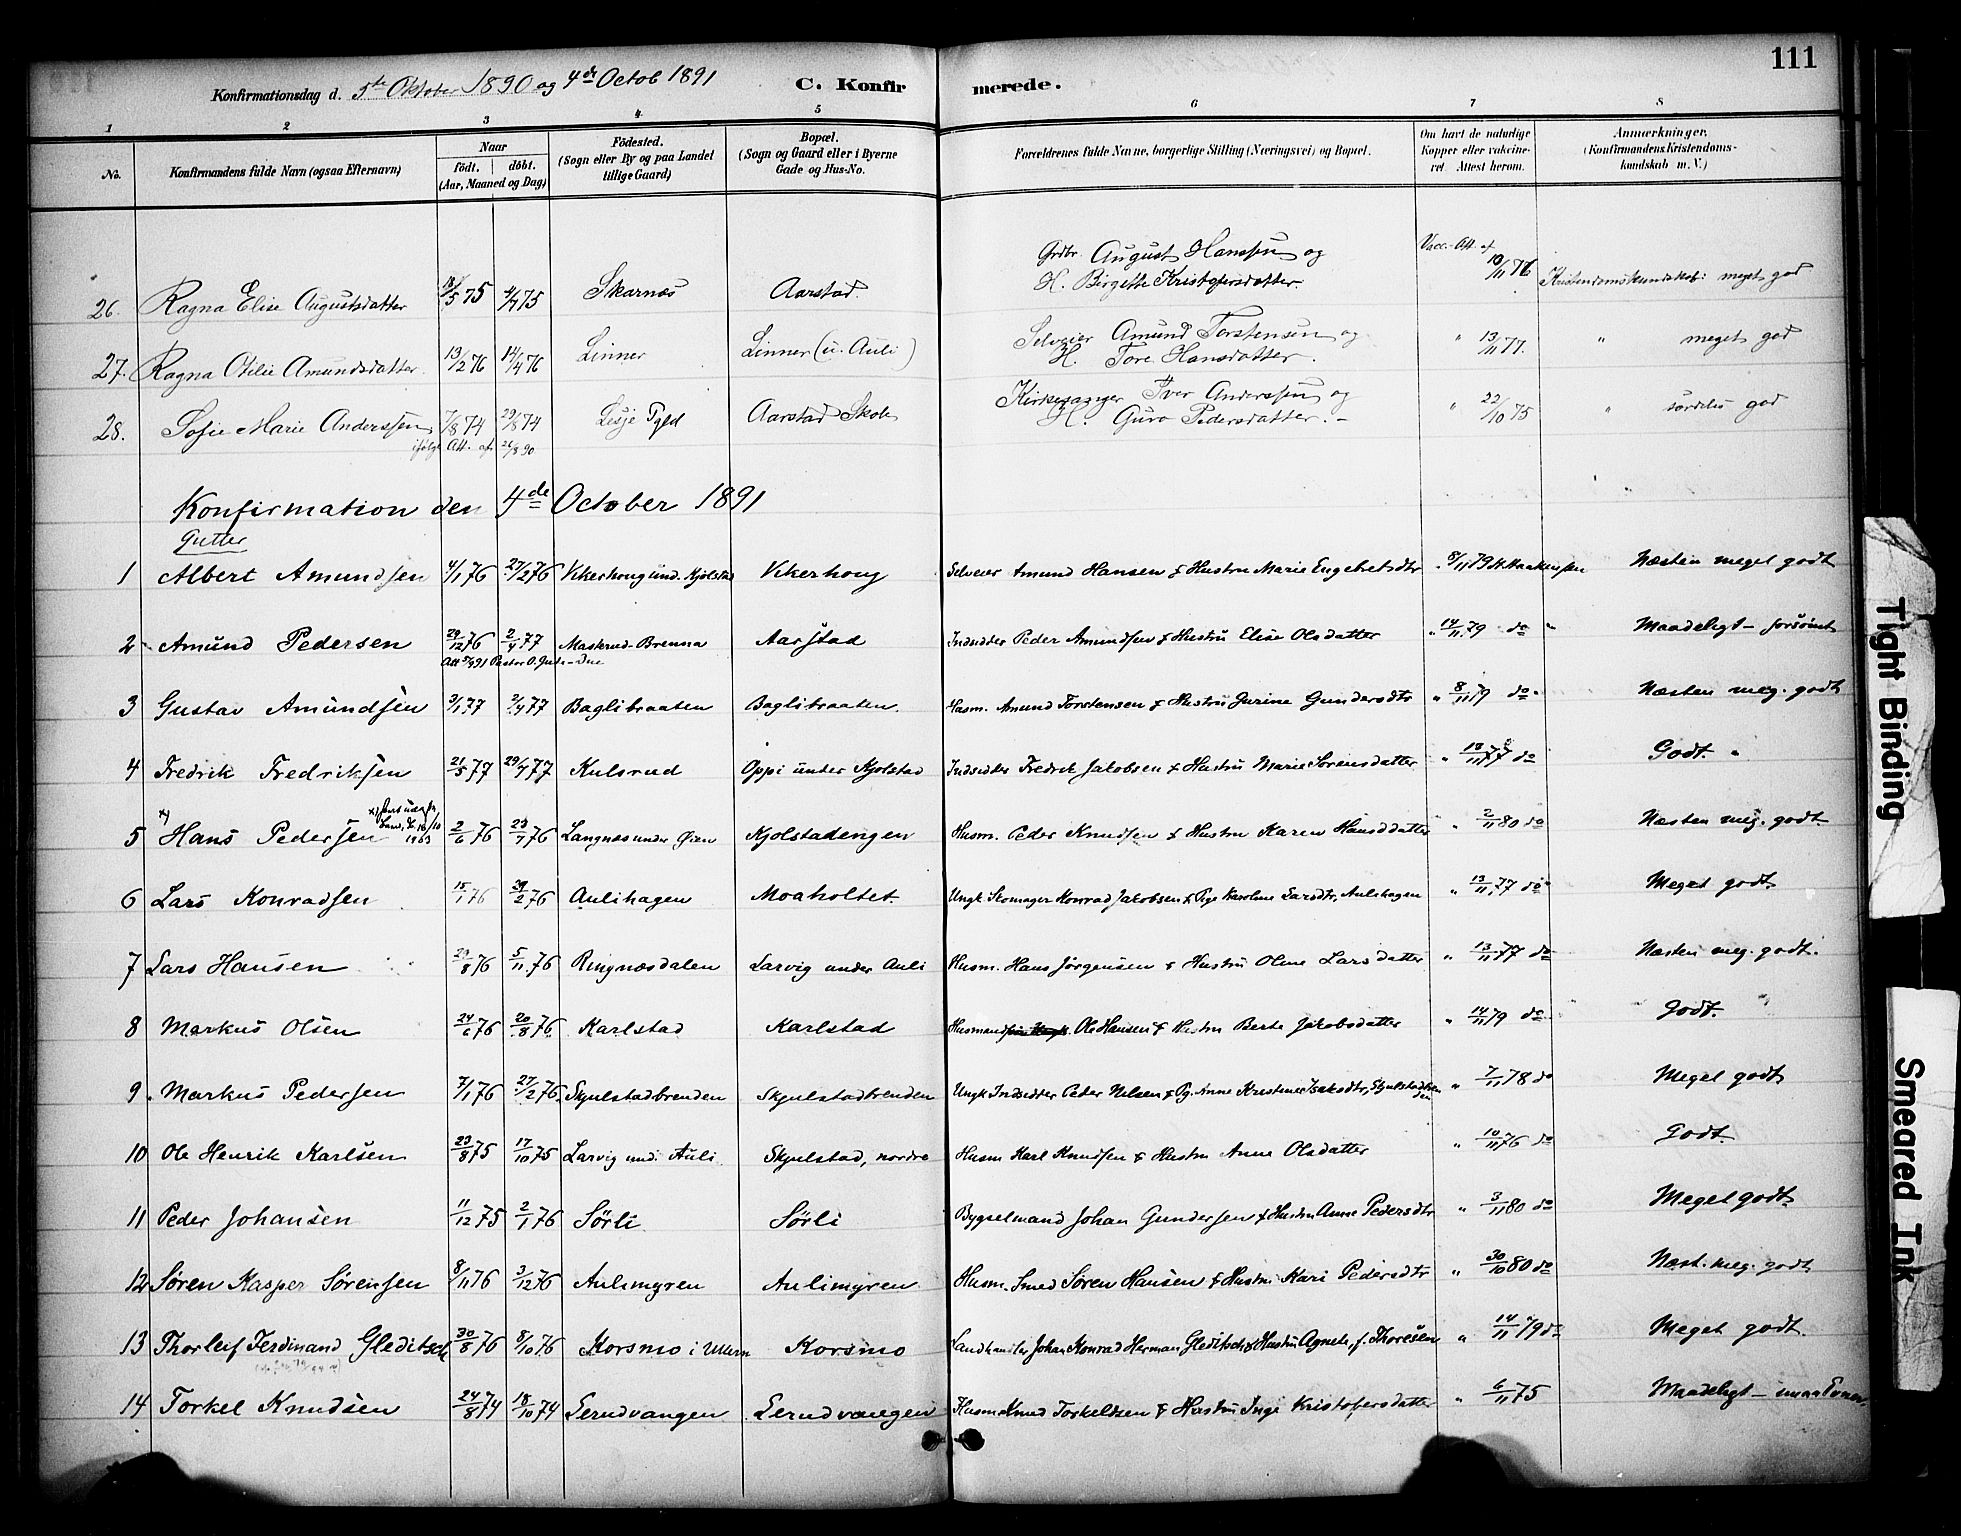 111
Konfirmationsdag d. 5te Oktober 1890 og 4de Octob 1891 C. Konfirmerede.
1 2 3 4 5 6 7 8
No. Konfirmandens fulde Navn (ogsaa Efternavn) Naar födt. döbt. (Aar, Maaned og Dag) Födested. (Sogn eller By og paa Landet tillige Gaard) Bopæl. (Sogn og Gaard eller i Byerne Gade og Hus-No. Forældrenes fulde Navne, borgerlige Stilling (Næringsvei) og Bopæl. Om havt de naturlige Kopper eller vakcineret Attest herom. Anmærkninger. (Konfirmandens Kristendomskundskab m. V.)
26. Ragna Elise Augustsdatter 18/5 75 4/7 75 Skarnæs Aarstad. Grdbr. August Hanssen og H. Birgitte Kristofersdatter. Vacc. Att. af 10/11 76 Kristendomskundskab: meget god
27. Ragna Otilie Amundsdatter 13/2 76 14/4 76 Linner Linner (u. Auli) Selveier Amund Torstensen og H. Tore Hansdatter. " 13/11 77. " meget god
28. Sofie Marie Anderssen 7/8 74 29/8 74 Lesje Pgld Aarstad Skole Kirkesanger Iver Anderssen og H. Guro Pedersdatter. - " 22/10 75 " særdeles god
ifølge Att. af 26/8 90
Konfirmation den 4de October 1891
Gutter
1 Albert Amundsen 4/1 76 27/2 76 Kkerhoug und. Kjølstad Kkerhoug Selveier Amund Hansen & Hustru Marie Engebretsdtr " 8/11 79 H. Haakensen Næsten meget godt
2 Amund Pedersen 29/12 76 2/4 77 Maskerud-Brenna Aarstad Indsidder Peder Amundsen & Hustru Elise Olsdatter " 14/11 79 do " Maadeligt - forsømt
3 Gustav Amundsen 3/1 77 2/4 77 Baglibraaten Baglibraaten. Husm. Amund Torstensen & Hustru Jurine Gundersdtr " 8/11 79 do " Næsten meg. godt
4 Fredrik Fredriksen 21/5 77 29/7 77 Kulsrud Oppi under Kjølstad Indsidder Fredrik Jakobsen & Hustru Marie Sørensdatter " 18/11 77 do Godt. "
5 x) Hans Pedersen 2/6 76 23/7 76 Langnæs under Øien Kjolstadengen Husm. Peder Knudsen & Hustru Karen Hansdatter " 2/11 80 do Næsten meg. godt.
6 Lars Konradsen 15/1 76 29/2 76 Aulihagen Moaholtet. Ungk. Skomager Konrad Jakobsen & Pige Karoline Larsdtr, Aulihagen " 13/11 77 do Meget godt
7 Lars Hansen 29/8 76 5/11 76 Ringnæsdalen Larvig under Auli Husm. Hans Jørgensen & Hustru Oline Larsdatter " 13/11 77 do Næsten meg. godt.
8 Markus Olsen 24/6 76 20/8 76 Karlstad Karlstad Husmand Ole Hansen & Hustru Berte Jakobsdatter " 14/11 79 do " Godt. "
9. Markus Pedersen 7/1 76 27/2 76. Skjulstadbrenden Skjulstadbrenden Ungk Indsidder Peder Nilsen & Pg. Anne Kristine Isaksdtr, Skjulstadbrenden " 7/11 78 do Meget godt
10 Ole Henrik Karlsen 23/8 75 17/10 75 Larvig und. Auli Skjulstad, nordre Husm Karl Knudsen & Hustru Anne Olsdatter " 10/11 76 do Godt.
11 Peder Johansen 11/12 75 2/1 76 Sörli Sörli Bygselmand Johan Gundersen & Hustru Anne Pedersdtr " 3/11 80 do Meget godt
12 Søren Kasper Sørensen 8/11 76 3/12 76 Aulimyren Aulimyren Husm. Smed Søren Hansen & Hustru Kari Pedersdtr " 30/10 80 do Næst. meg. godt
13 Thorleif Ferdinand Gleditsch 30/8 76 8/10 76 Korsmo i Ullern Korsmo Landhandler Johan Konrad Herman Gleditsch & Hustru Agnete, f. Thoresen " 14/11 79 do Meget godt.
14 Torkel Knudsen 24/8 74 18/10 74 Lerudvangen Lerudvangen Husm. Knud Torkeldsen & Hustru Inge Kristofersdatter " 6/11 75 Maadeligt - smaa Evner.
Tight Binding
Smeared Ink